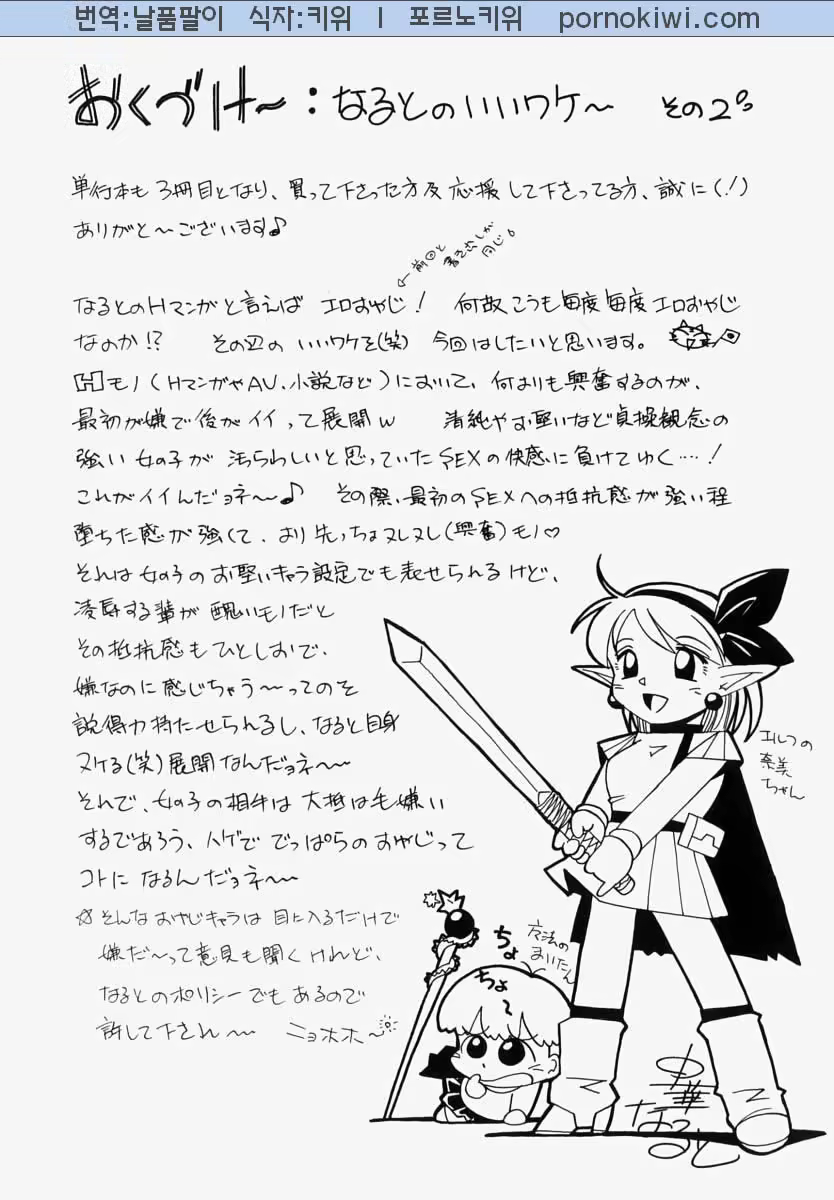 번역:날품팔이 식자:키위 | 포르노키위 pornokiwi.com
おくづけ〜：なるとのいいワケ〜 その2。
単行本も3冊目となり、買って下さった方及応援して下さってる方、誠に(!)
ありがと〜ございます♪
←前回と
書き出しが
同じ。
なるとのHマンガと言えば エロおやじ! 何故こうも毎度毎度エロおやじ
なのか!? その辺の いいワケを(笑) 今回はしたいと思います。
Hモノ(HマンガやAV、小説など)において、何よりも興奮するのが、
最初が嫌で後がイイって展開w 清純やお堅いなど貞操観念の
強い 女の子が 汚らわしいと思っていたSEXの快感に負けてゆく…!
これがイイんだョネ〜♪ その際、最初のSEXへの抵抗感が強い程
堕ちた感が強くて、より先っちょヌレヌレ(興奮)モノ♡
それは女の子のお堅いキャラ設定でも表せられるけど、
凌辱する輩が 醜いモノだと
その抵抗感もひとしおで、
嫌なのに感じちゃう〜ってのを
説得力持たせられるし、なると自身
ヌケる(笑)展開なんだョネ〜
それで、女の子の相手は 大抵は毛嫌い
するであろう、ハゲで でっぱらのおやじって
コトに なるんだョネ〜
☆そんな おやじキャラは 目に入るだけで
嫌だ〜って意見も聞くけれど、
なるとのポリシーでもあるので
許して下され〜 ニョホホ〜
エルフの
奈美
ちゃん
ちょ
ちょ
〜
まいたん